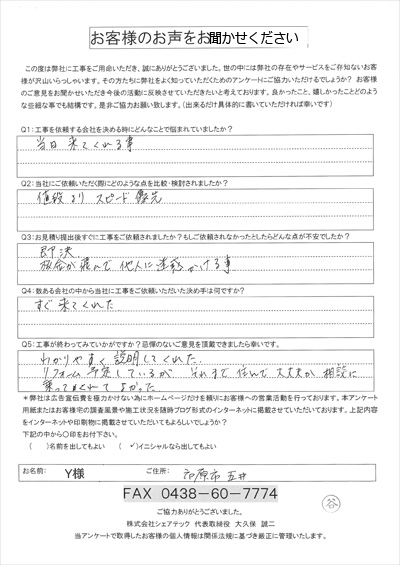 お客様のお声をお聞かせください
この度は弊社に工事をご用命いただき、誠にありがとうございました。世の中には弊社の存在やサービスをご存知ないお客
様が沢山いらっしゃいます。その方たちに弊社をよく知っていただくためのアンケートにご協力いただけるでしょうか？ お客様
のご意見をお聞かせいただき今後の活動に反映させていただきたいと考えております。良かったこと、嬉しかったことどのよう
な些細な事でも結構です。是非ご協力お願い致します。（出来るだけ具体的に書いていただければ幸いです）
Q1：工事を依頼する会社を決める時にどんなことで悩まれていましたか？
当日 来てくれる事
Q2：当社にご依頼いただく際にどのような点を比較・検討されましたか？
値段より スピード優先
Q3：お見積り提出後すぐに工事をご依頼されましたか？もしご依頼されなかったとしたらどんな点が不安でしたか？
即決
んで 他人に迷惑かける事
Q4：数ある会社の中から当社に工事をご依頼いただいた決め手は何ですか？
すぐ 来てくれた
Q5：工事が終わってみていかがですか？忌憚のないご意見を頂戴できましたら幸いです。
わかりやすく 説明してくれた.
リフォーム 予定しているが それまで 住んで 大丈夫か 相談に
乗ってくれて よかった.
＊弊社は広告宣伝費を極力かけない為にホームページだけを頼りにお客様への営業活動を行っております。本アンケート
用紙またはお客様宅の調査風景や施工状況を随時ブログ形式のインターネットに掲載させていただいております。上記内容
をインターネットや印刷物に掲載させていただいてもよろしいでしょうか？
下記の中から〇印をお付下さい。
（ ）名前を出してもよい （✓）イニシャルなら出してもよい
お名前： Y様 ご住所： 市原市 五井
FAX 0438-60-7774
谷
ご協力ありがとうございました。
株式会社シェアテック 代表取締役 大久保 誠二
当アンケートで取得したお客様の個人情報は関係法規に基づき厳正に管理いたします。